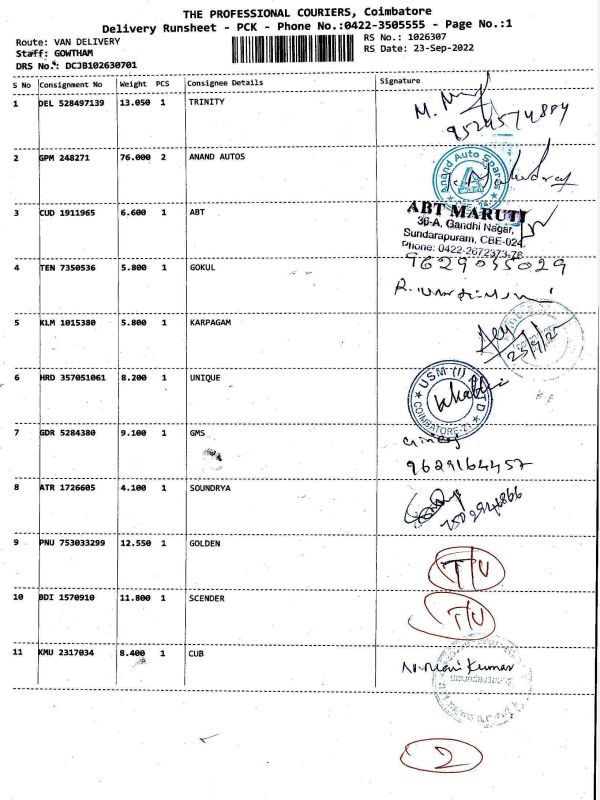 THE PROFESSIONAL COURIERS, Coimbatore
Delivery Runsheet - PCK - Phone No.:0422-3505555 - Page No.:1
Route: VAN DELIVERY
Staff: GOWTHAM
DRS No.: DCJB102630701
RS No.: 1026307
RS Date: 23-Sep-2022
S No Consignment No Weight PCS Consignee Details Signature
1 DEL 528497139 13.050 1 TRINITY
2 GPM 248271 76.000 2 ANAND AUTOS
Anand Auto Spares
3 CUD 1911965 6.600 1 ABT
ABT MARUTI
36-A, Gandhi Nagar,
Sundarapuram, CBE-024.
Phone: 0422-2672373-76
4 TEN 7350536 5.800 1 GOKUL
9629035029
5 KLM 1015380 5.800 1 KARPAGAM
6 HRD 357051061 8.200 1 UNIQUE
USM (I) P LTD
COIMBATORE-21
7 GDR 5284380 9.100 1 GMS
9629164457
8 ATR 1726605 4.100 1 SOUNDRYA
9 PNU 753033299 12.550 1 GOLDEN
T/U
10 BDI 1570910 11.800 1 SCENDER
T/U
11 KMU 2317034 8.400 1 CUB
Kumar
2